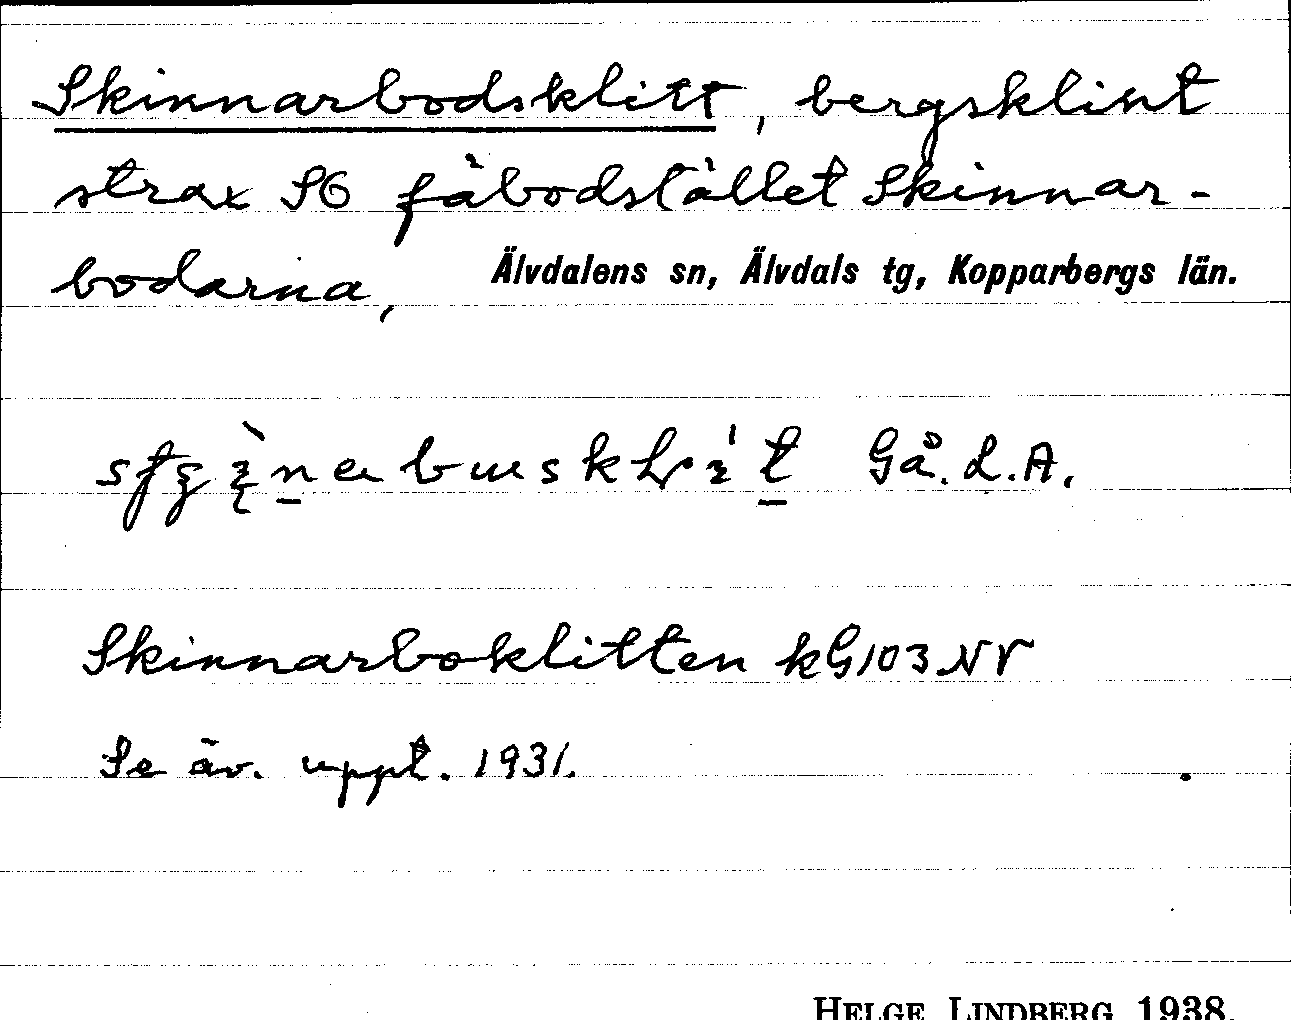 Skinnarbodsklitt, bergsklint
strax SO fäbodstället Skinnar-
bodarna, Älvdalens sn, Älvdals tg, Kopparbergs län.
Gå. d.A.
Skinnarboklitten kG103NV
Se äv. uppt. 1931.
HELGE LINDBERG 1938.